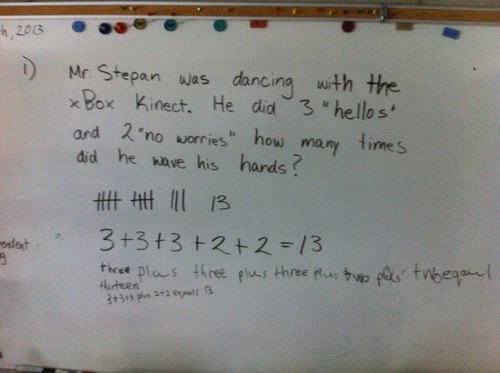 h, 2013
1) Mr. Stepan was dancing with the
xBox Kinect. He did 3 "hellos"
and 2 "no worries" how many times
did he wave his hands?
13
3+3+3+2+2=13
three plus three plus three plus two plus twoequal
thirteen
3+3+3 plus 2+2 equals 13
pendent
g